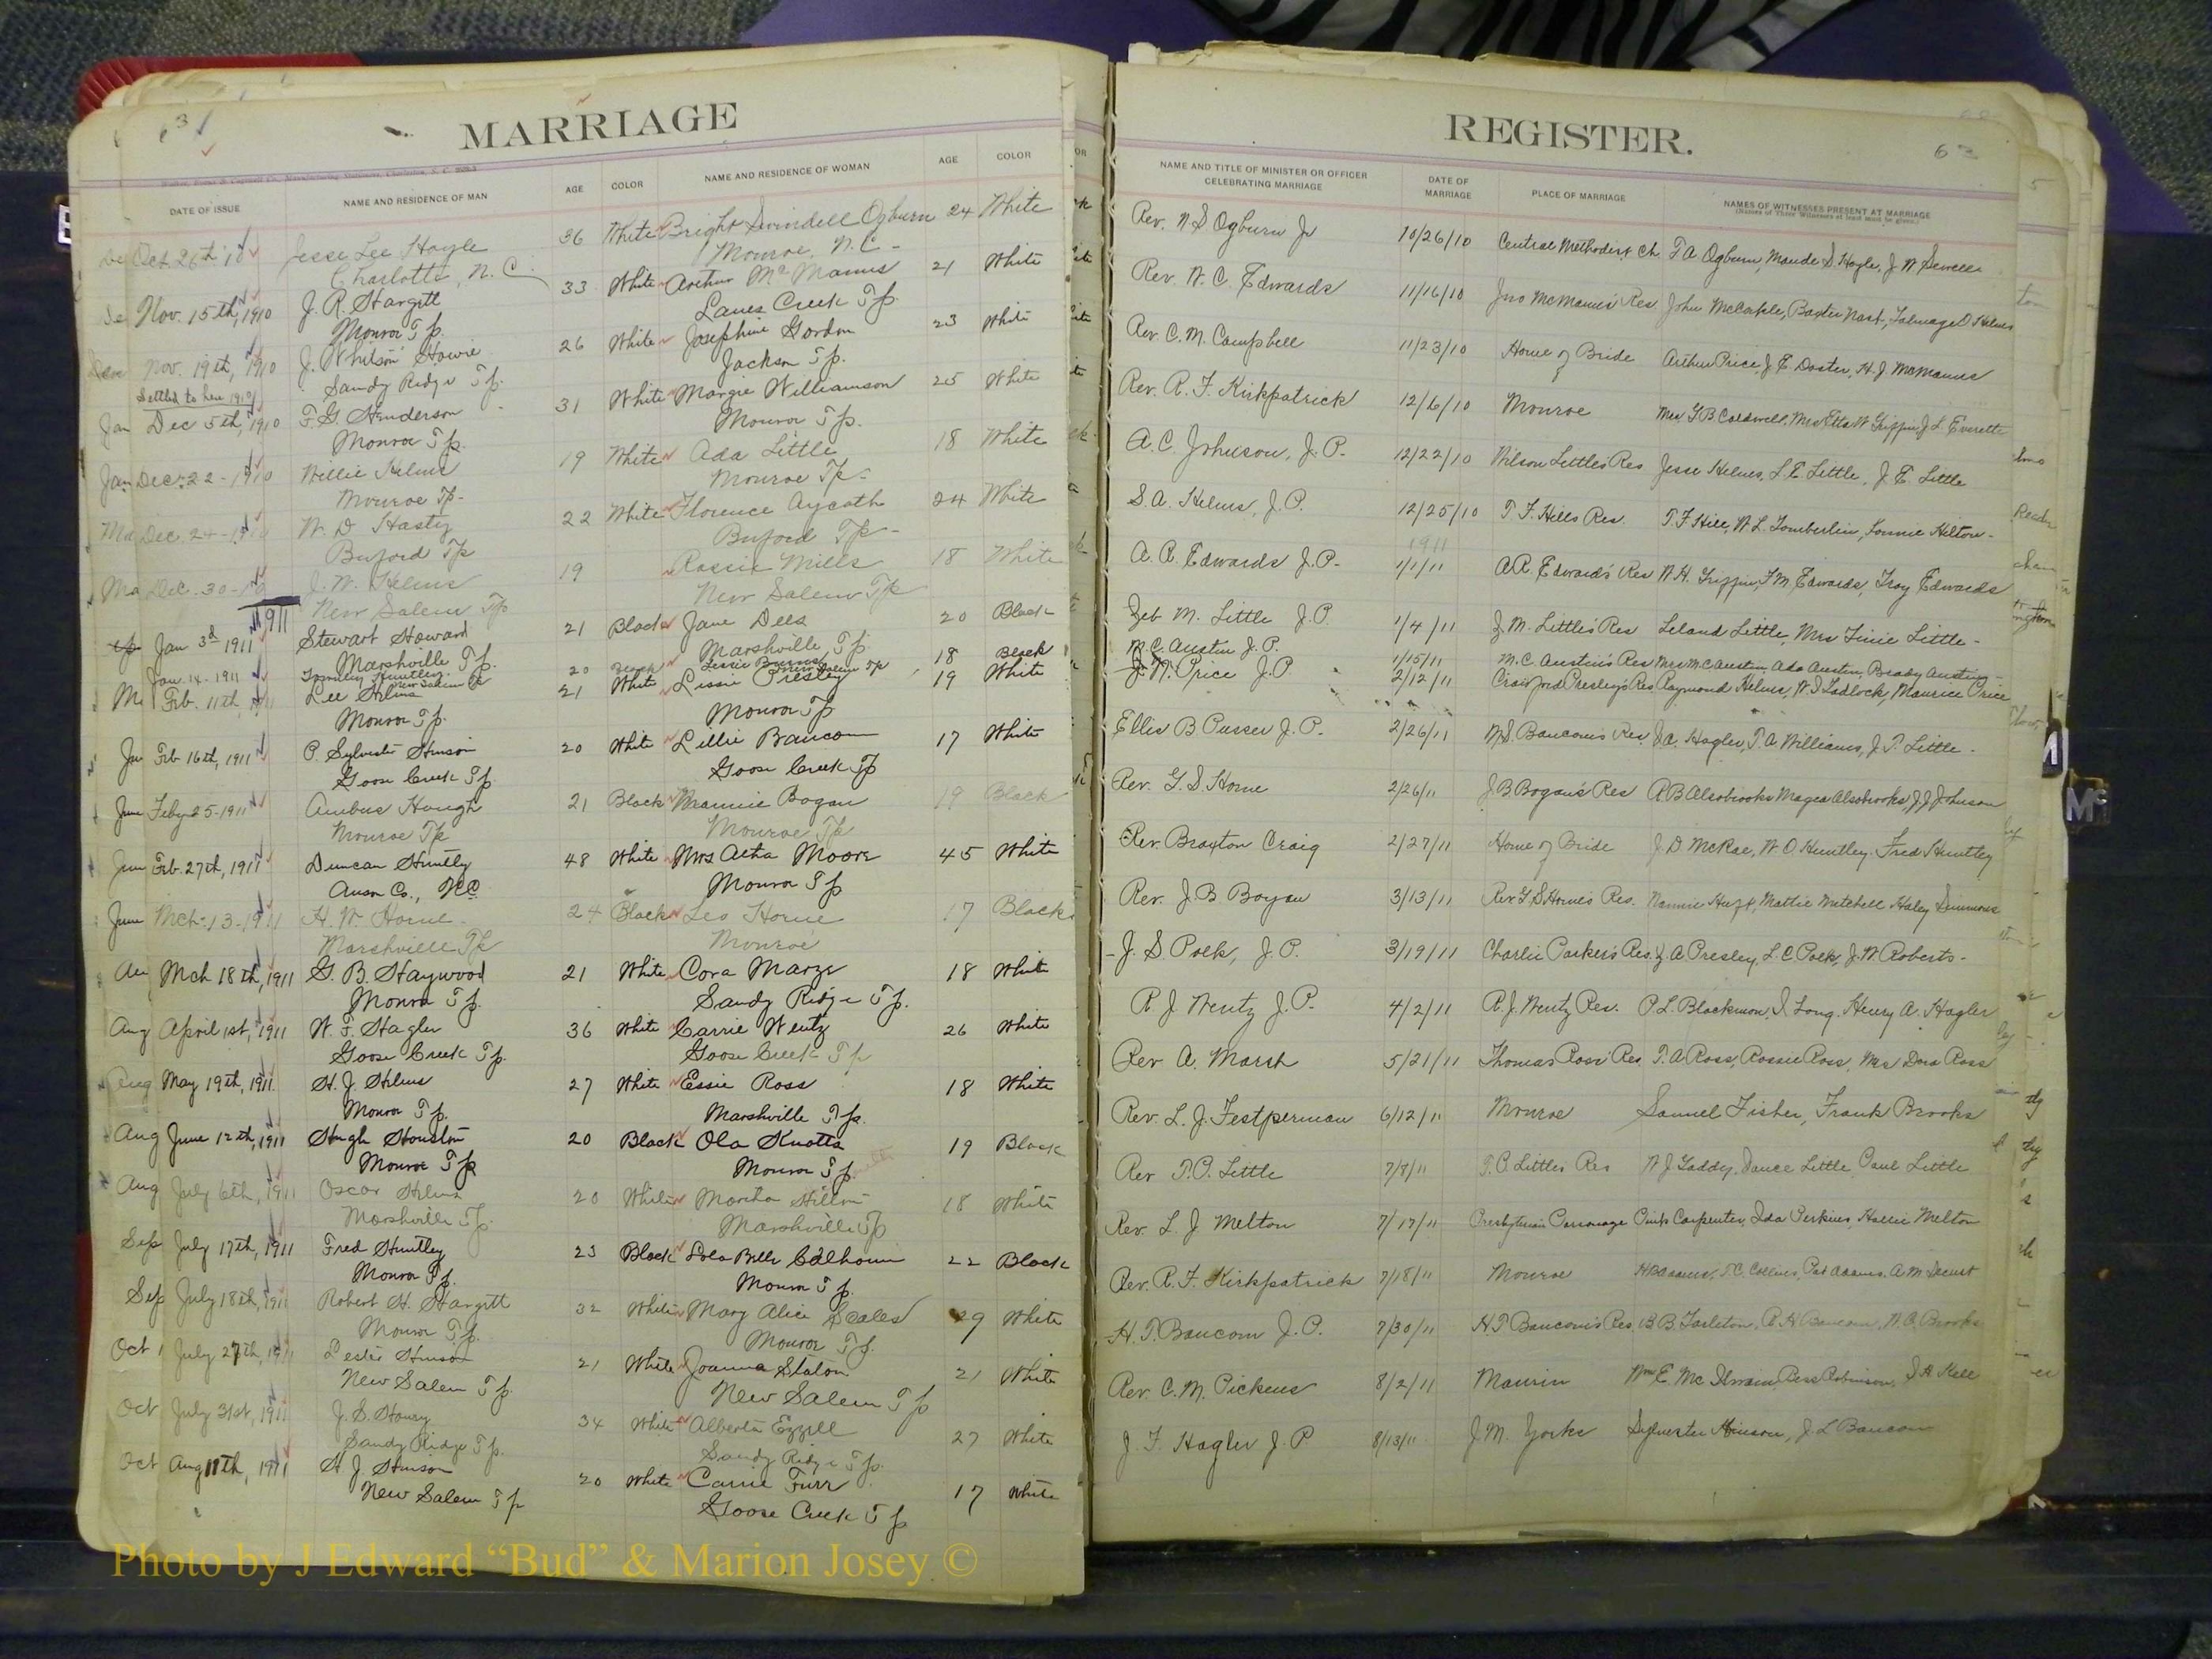 MARRIAGE
63
DATE OF ISSUE NAME AND RESIDENCE OF MAN AGE COLOR NAME AND RESIDENCE OF WOMAN AGE COLOR
Oct. 26th Jesse Lee Hoyle 36 White Bright Swindell Ogburn 24 White
Charlotte, N.C. Monroe, N.C.
Nov. 15th, 1910 J. R. Hargett 33 White Arthur McManus 21 White
Monroe Tp. Lanes Creek Tp.
Nov. 19th, 1910 J. Whitson Howie 26 White Josephine Gordon 23 White
Sandy Ridge Tp. Jackson Tp.
Settled to here 1910
Dec 5th, 1910 F. G. Henderson 31 White Margie Williamson 25 White
Monroe Tp. Monroe Tp.
Dec. 22-1910 Willie Helms 19 White Ada Little 18 White
Monroe Tp- Monroe Tp-
Dec. 24- W. D. Hasty 22 White Florence Aycoth 24 White
Buford Tp Buford Tp-
Dec. 30- J. W. Helms 19 Rossie Mills 18 White
New Salem Tp New Salem Tp
1911
Jan 3d 1911 Stewart Howard 21 Black Jane Dees 20 Black
Marshville Tp. Marshville Tp.
Jan. 14-1911 Huntley 20 Black 18 Black
New Salem Tp New Salem Tp
Feb. 11th, Lee Helms 21 White Lissie Presley 19 White
Monroe Tp. Monroe Tp
Feb 16th, 1911 P. Sylvester Hinson 20 White Lillie Baucom 17 White
Goose Creek Tp. Goose Creek Tp
Feby 25-1911 Hough 21 Black Mannie Bogan 19 Black
Monroe Tp Monroe Tp
Feb. 27th, 1911 Duncan Huntley 48 White Mrs Moore 45 White
Anson Co., N.C. Monroe Tp
Mch-13-1911 H. W. Horne 24 Black Leo Horne 17 Black
Marshville Tp Monroe
Mch 18th, 1911 G. B. Haywood 21 White Cora Marze 18 White
Monroe Tp. Sandy Ridge Tp.
April 1st, 1911 W. F. Hagler 36 White Carrie Wentz 26 White
Goose Creek Tp. Goose Creek Tp
May 19th, 1911 H. J. Helms 27 White Essie Ross 18 White
Monroe Tp. Marshville Tp.
June 12th, 1911 Hugh Houston 20 Black Ola Knotts 19 Black
Monroe Tp Monroe Tp.
July 6th, 1911 Oscar Helms 20 White Martha 18 White
Marshville Tp. Marshville Tp
July 17th, 1911 Fred Huntley 23 Black Lola Belle Calhoun 22 Black
Monroe Tp. Monroe Tp.
July 18th, 1911 Robert H. Hargett 32 White Mary Alice Scales 29 White
Monroe Tp. Monroe Tp.
July 27th, 1911 Lester Hinson 21 White Joanna Staton 21 White
New Salem Tp. New Salem Tp
July 31st, 1911 J. S. Howry 34 White Alberta Ezzell 27 White
Sandy Ridge Tp. Sandy Ridge Tp.
Aug 11th, 1911 H. J. Hinson 20 White Carrie Furr 17 White
New Salem Tp Goose Creek Tp
REGISTER.
63
NAME AND TITLE OF MINISTER OR OFFICER CELEBRATING MARRIAGE DATE OF MARRIAGE PLACE OF MARRIAGE NAMES OF WITNESSES PRESENT AT MARRIAGE
(Names of Three Witnesses at least must be given.)
Rev. N S Ogburn Jr 10/26/10 Central Methodist Ch. T A Ogburn, Maude S Hoyle, J W Sewell
Rev. W. C. Edwards 11/16/10 Jno McManus Res John McCorkle, Baxter Nash, Talmage D Helms
Rev. C. M. Campbell 11/23/10 Home of Bride Arthur Price, J E Doster, H. J McManus
Rev. R. F. Kirkpatrick 12/6/10 Monroe Mrs G B Caldwell, Mrs Etta W Griffin, J L Everette
A. C. Johnson, J. P. 12/22/10 Wilson Little's Res Jesse Helms, L. E. Little, J. E. Little
S. A. Helms, J. P. 12/25/10 T. F. Hill's Res. T. F Hill, W. L. Tomberlin, Lonnie Hilton-
1911
A. A. Edwards J. P- 1/1/11 A. A. Edwards Res W. H. Griffin, F. M. Edwards, Troy Edwards
Zeb M. Little J. P. 1/4/11 J. M. Little's Res Leland Little, Mrs Finie Little-
M. C. Austin J. P. 1/15/11 M. C. Austin's Res Mrs M C Austin, Ada Austin, Brady Austin-
J. N. Price J. P. 2/12/11 Crawford Presley's Res Raymond Helms, W. T Tadlock, Maurice Price
Ellis B Pusser J. P. 2/26/11 W. S. Baucom's Res. J. A. Hagler, T. A Williams, J. T. Little-
Rev. G. S Horne 2/26/11 J. B Bogan's Res A B Alsobrooks Magea Alsobrooks, J J Johnson
Rev. Braxton Craig 2/27/11 Home of Bride J. D McRae, W O Huntley. Fred Huntley
Rev. J. B. Bogan 3/13/11 Rev G. S Horne's Res. Mattie Mitchell Haley Simmons
J. S Polk, J. P. 3/19/11 Charlie Parker's Res. J. A Presley, L. C Polk, J. W Roberts-
R J Wentz J. P. 4/2/11 R. J. Wentz Res. P. L. Blackmon, I. Long. Henry A. Hagler
Rev A. Marsh 5/21/11 Thomas Ross' Res. T. A Ross, Rossie Ross, Mrs Dora Ross
Rev. L. J. Festperman 6/12/11 Monroe Samuel Fisher, Frank Brooks
Rev T. P. Little 7/8/11 T. P. Little's Res W J Gaddy, Vance Little Carl Little
Rev. L. J Melton 7/17/11 Presbyterian Parsonage Pink Carpenter, Ida Perkins, Hallie Melton
Rev. R. F. Kirkpatrick 7/18/11 Monroe H B Adams, T. C. Collins, Pat Adams, A M Secrest
H. T. Baucom J. P. 7/30/11 H T Baucom's Res B B. Tarleton, A H Baucom, W. A. Brooks
Rev. C. M. Pickens 8/2/11 Marvin Wm E. McIlwain, Bess Robinson, S H Kell
J. F. Hagler J. P 8/13/11 J. M. Yorks Sylvester Hinson, J L Baucom
Photo by J Edward “Bud” & Marion Josey ©